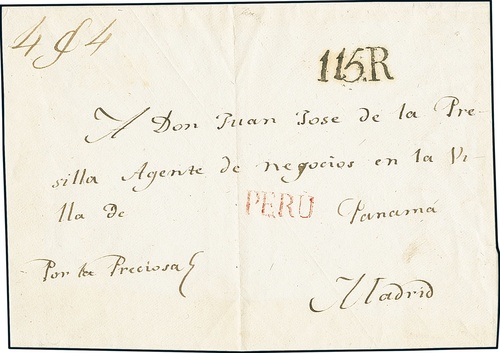 4 & 4
115.R
A Don Juan Jose de la Pre-
silla Agente de negocios en la Vi-
lla de PERU Panamá
Por la Preciosa
Madrid